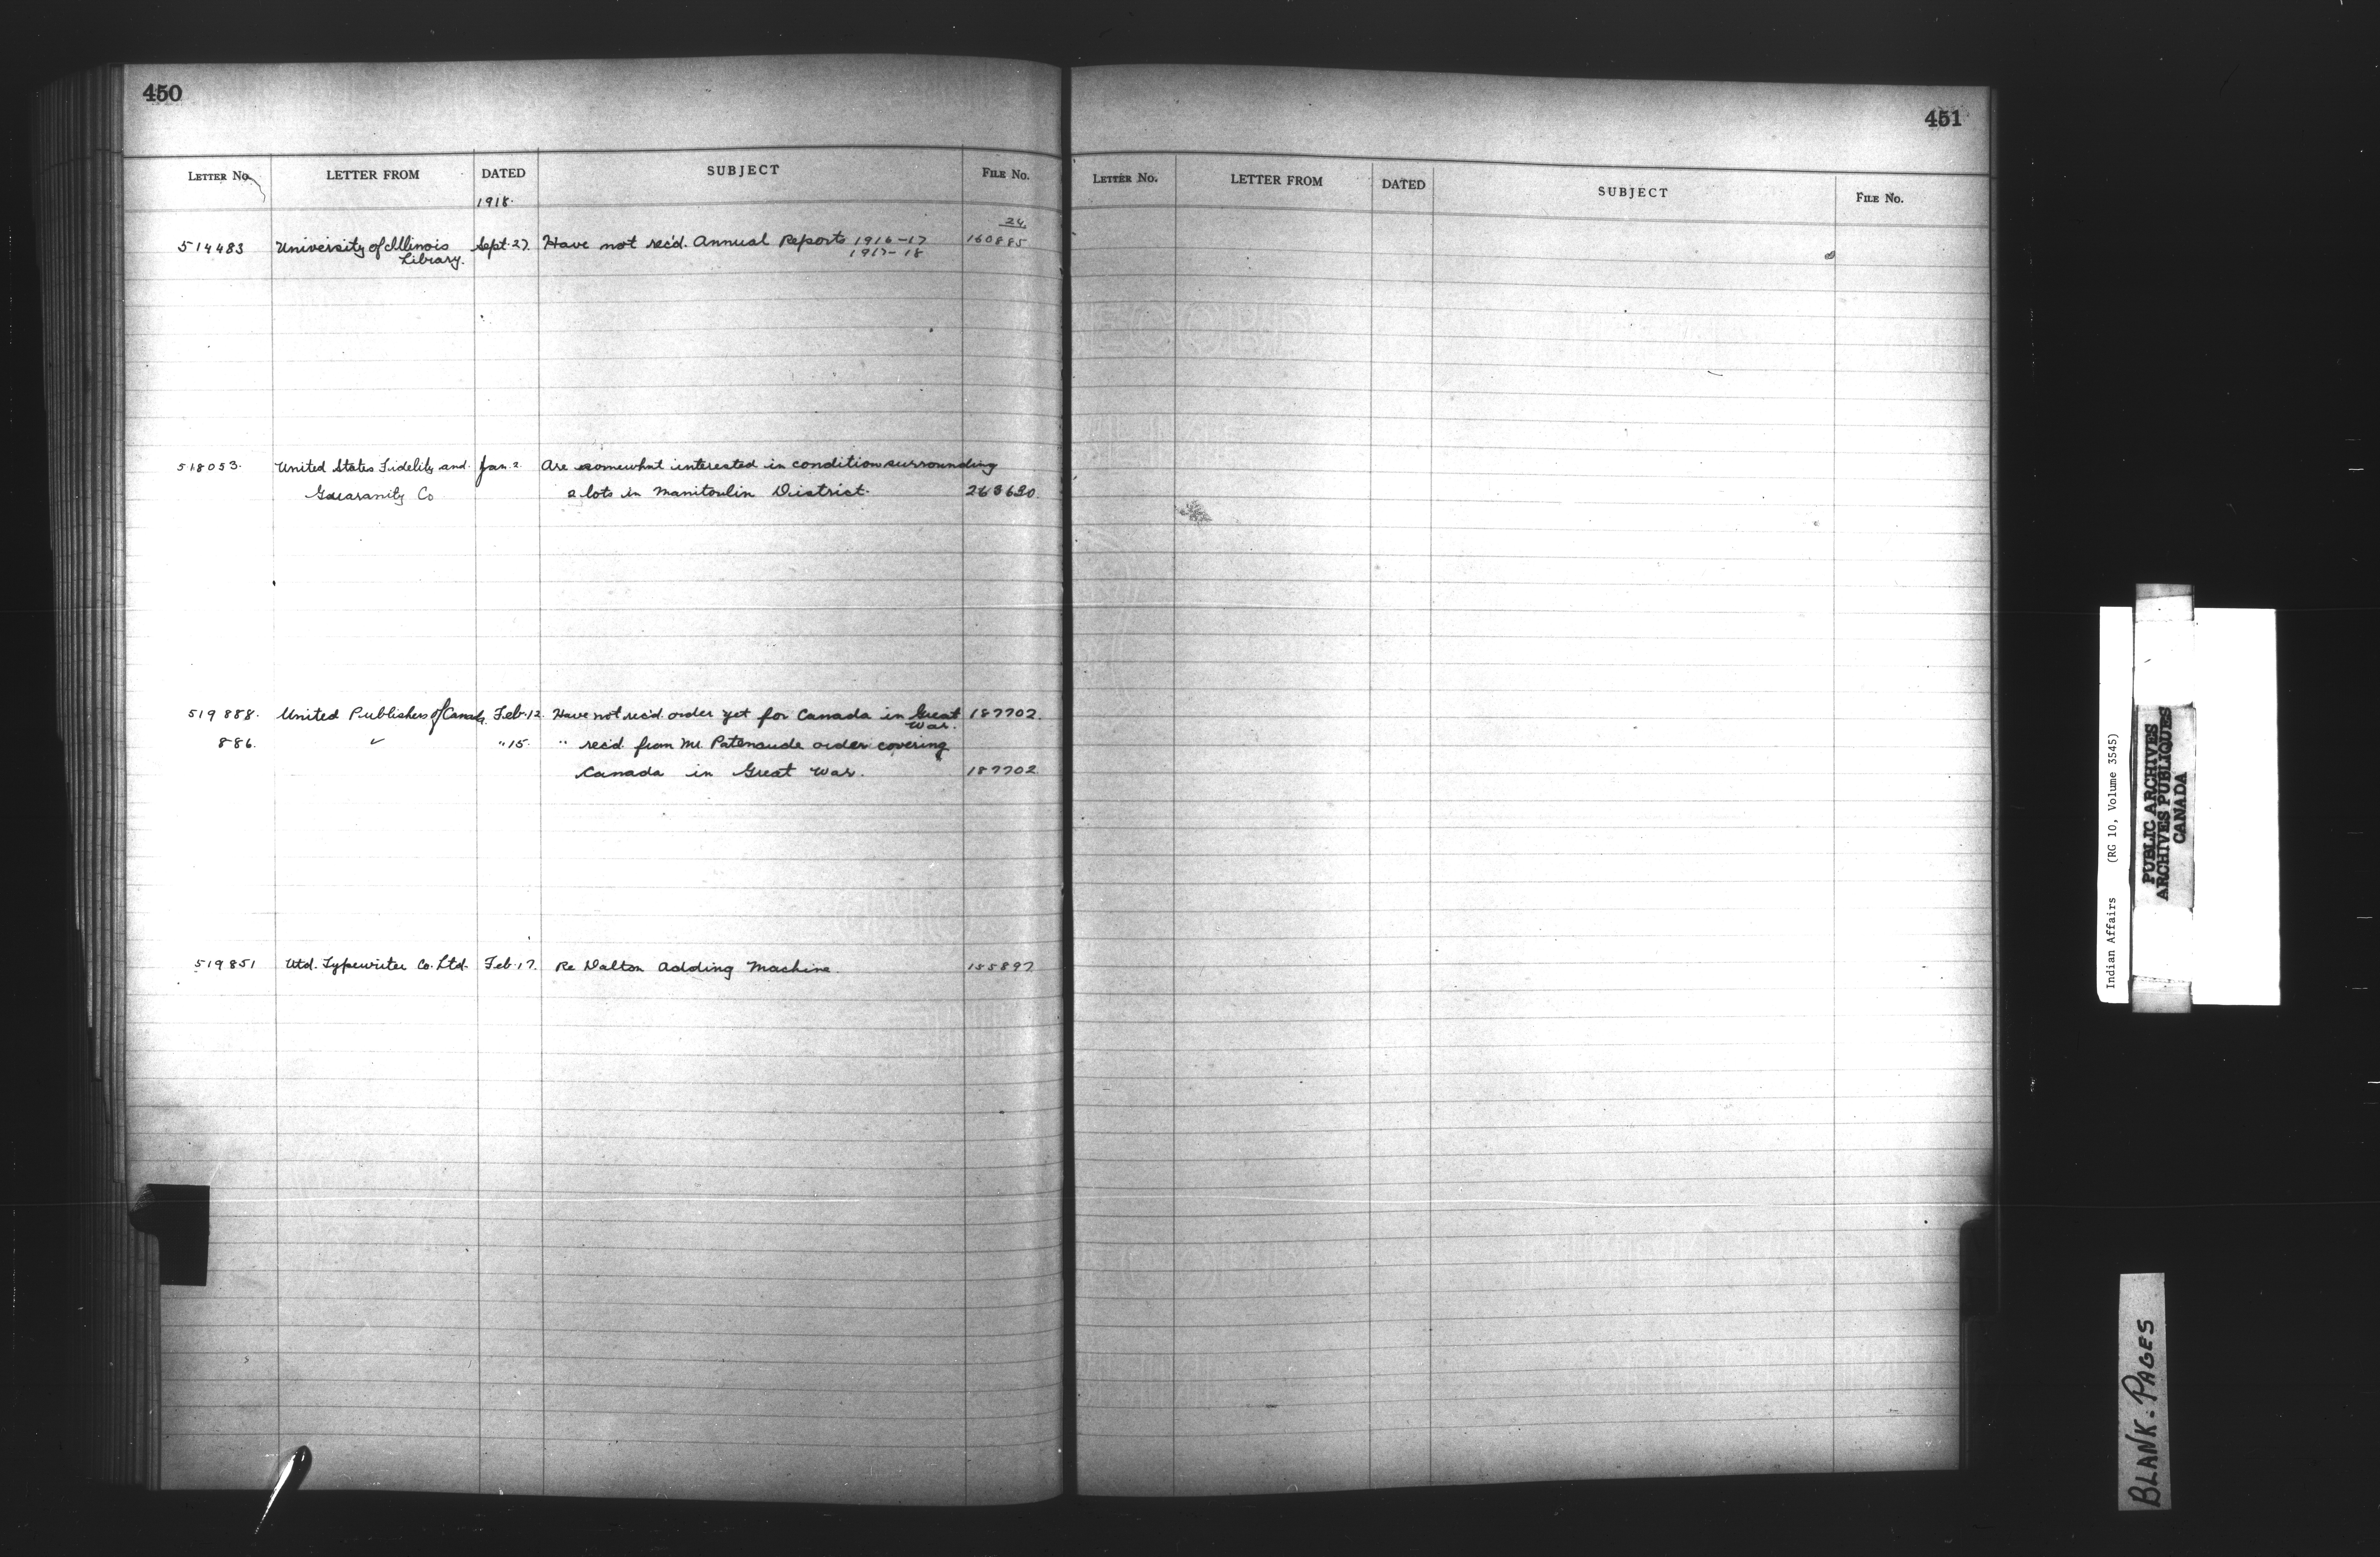 450
LETTER No. LETTER FROM DATED SUBJECT FILE No.
1918.
24.
514483 University of Illinois Sept. 27. Have not rec'd. Annual Reports 1916-17 160885
Library. 1917-18
518053. United States Fidelity and Jan. 2. Are somewhat interested in condition surrounding
Guaranity Co 2 lots in Manitoulin District.
519888. United Publishers of Canada Feb. 12. Have not rec'd order yet for Canada in Great 187702.
War.
886. " 15. " rec'd from Mr. Patenaude order covering
Canada in Great War. 187702
519851 Utd. Typewriter Co. Ltd. Feb. 17. Re Dalton Adding Machine. 155897
451
LETTER No. LETTER FROM DATED SUBJECT FILE No.
Indian Affairs (RG 10, Volume 3545)
PUBLIC ARCHIVES
ARCHIVES PUBLIQUES
CANADA
BLANK. PAGES